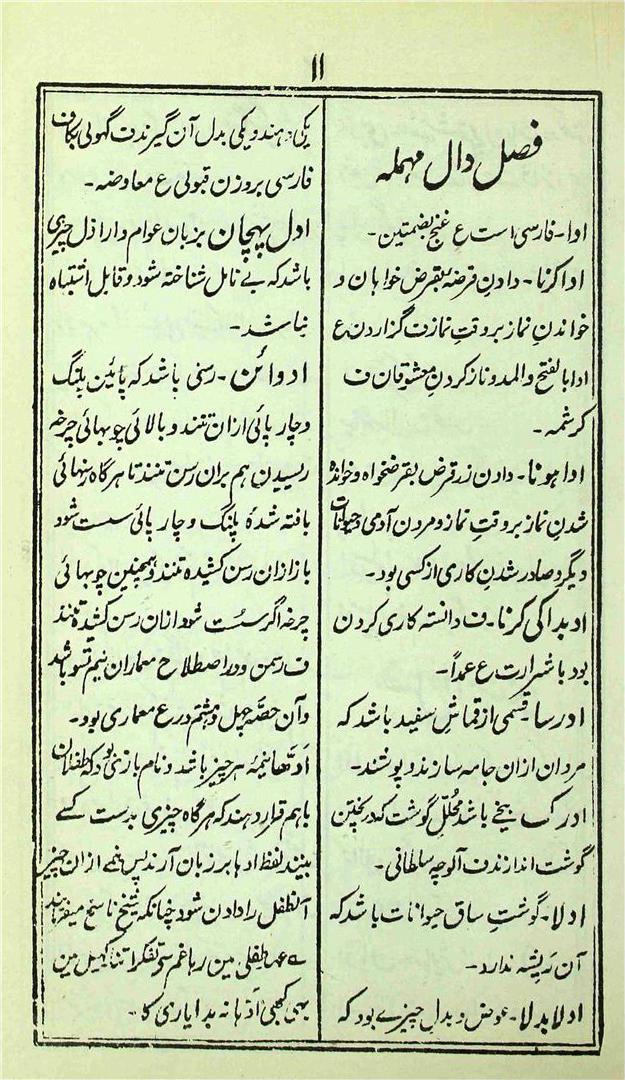 ۱۱
فصل دال مہملہ
ادا۔ فارسی است ع غنج بضمتین۔
ادا کرنا۔ دادنِ قرضہ بقرض خواہان و
خواندنِ نماز بر وقتِ نماز ت گزاردن ع
ادا بالفتح والمد و ناز کردنِ معشوقان ف
کرشمہ۔
ادا ہونا۔ دادن زر قرض بقرضخواہ و خواندہ
شدنِ نماز بر وقتِ نماز و مردن آدمی و حیوانات
دیگر و صادر شدنِ کاری از کسی بود۔
ادبدا کی کرنا۔ ف دانستہ کاری کردن
بود با شرارت ع عمداً۔
ادرسا قسمی از قماشِ سفید باشد کہ
مردان ازان جامہ سازند و پوشند۔
ادرک بیخے باشد محلّلِ گوشت کہ در پختن
گوشت اندازند ف آلوچہ سلطانی۔
ادلا۔ گوشتِ ساق حیوانات باشد کہ
آن ریشہ ندارد۔
ادلا بدلا۔ عوض و بدلِ چیزے بود کہ
یکی دہند و یکی بدل آن گیرند ت گہولی بکاف
فارسی بروزن قبولی ع معاوضہ۔
ادل پہچان بزبان عوام و اراذل چیزی
باشد کہ بے تامل شناختہ شود و قابل اشتباہ
نباشد۔
ادوائن۔ رسنی باشد کہ پائین پلنگ
و چارپائی ازان تنند و بالائی چوبہائی چرخہ
ریسیدن ہم بران رسن تنند تا ہرگاہ رسنہائی
بافتہ شدۂ پلنگ و چارپائی سست شود
باز ازان رسن کشیدہ تنند و ہمچنین چوبہائی
چرخہ اگر سست شود ازان رسن کشیدہ تنند
ف رسن و در اصطلاح معماران نیم تسو باشد
و آن حصّہ چہل و ہشتم درع معماری بود۔
ادّھا نیمۂ ہر چیز باشد و نام بازی بود کہ طفلان
باہم قرار دہند کہ ہرگاہ چیزی بدست کسے
بینند لفظ ادہا بر زبان آرند پس نیمے ازان چیز
آنطفل را دادن شود چنانکہ شیخ ناسخ میفرمایند
طفلی مین رہا غم سی تفکر اتنا کھیل مین
بھی کبھی ادّہا نہ بدا یاری کا۔